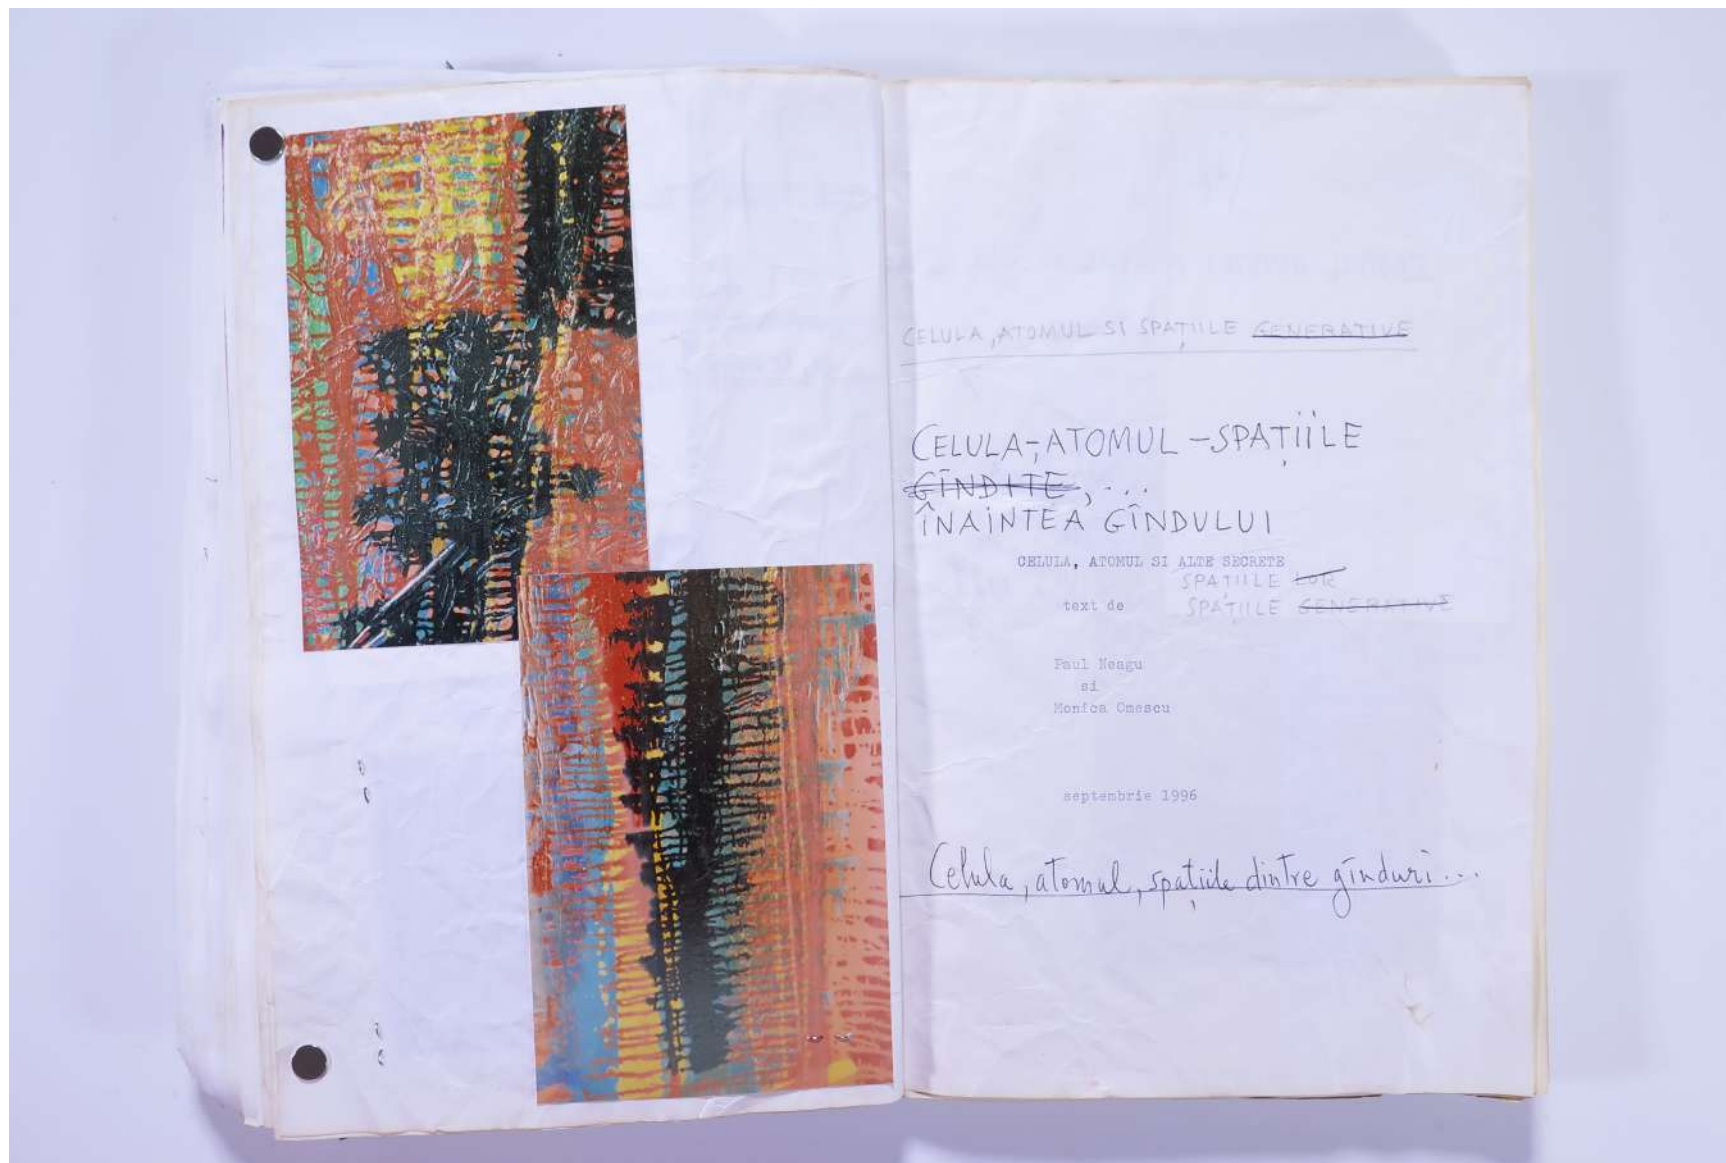 CELULA, ATOMUL SI SPAȚIILE GENERATIVE
CELULA-, ATOMUL - SPAȚIILE
GÎNDITE, ...
ÎNAINTEA GÎNDULUI
CELULA, ATOMUL SI ALTE SECRETE
SPAȚIILE LOR
text de
SPAȚIILE GENERATIVE
Paul Neagu
si
Monica Omescu
septembrie 1996
Celula, atomul, spațiile dintre gînduri...